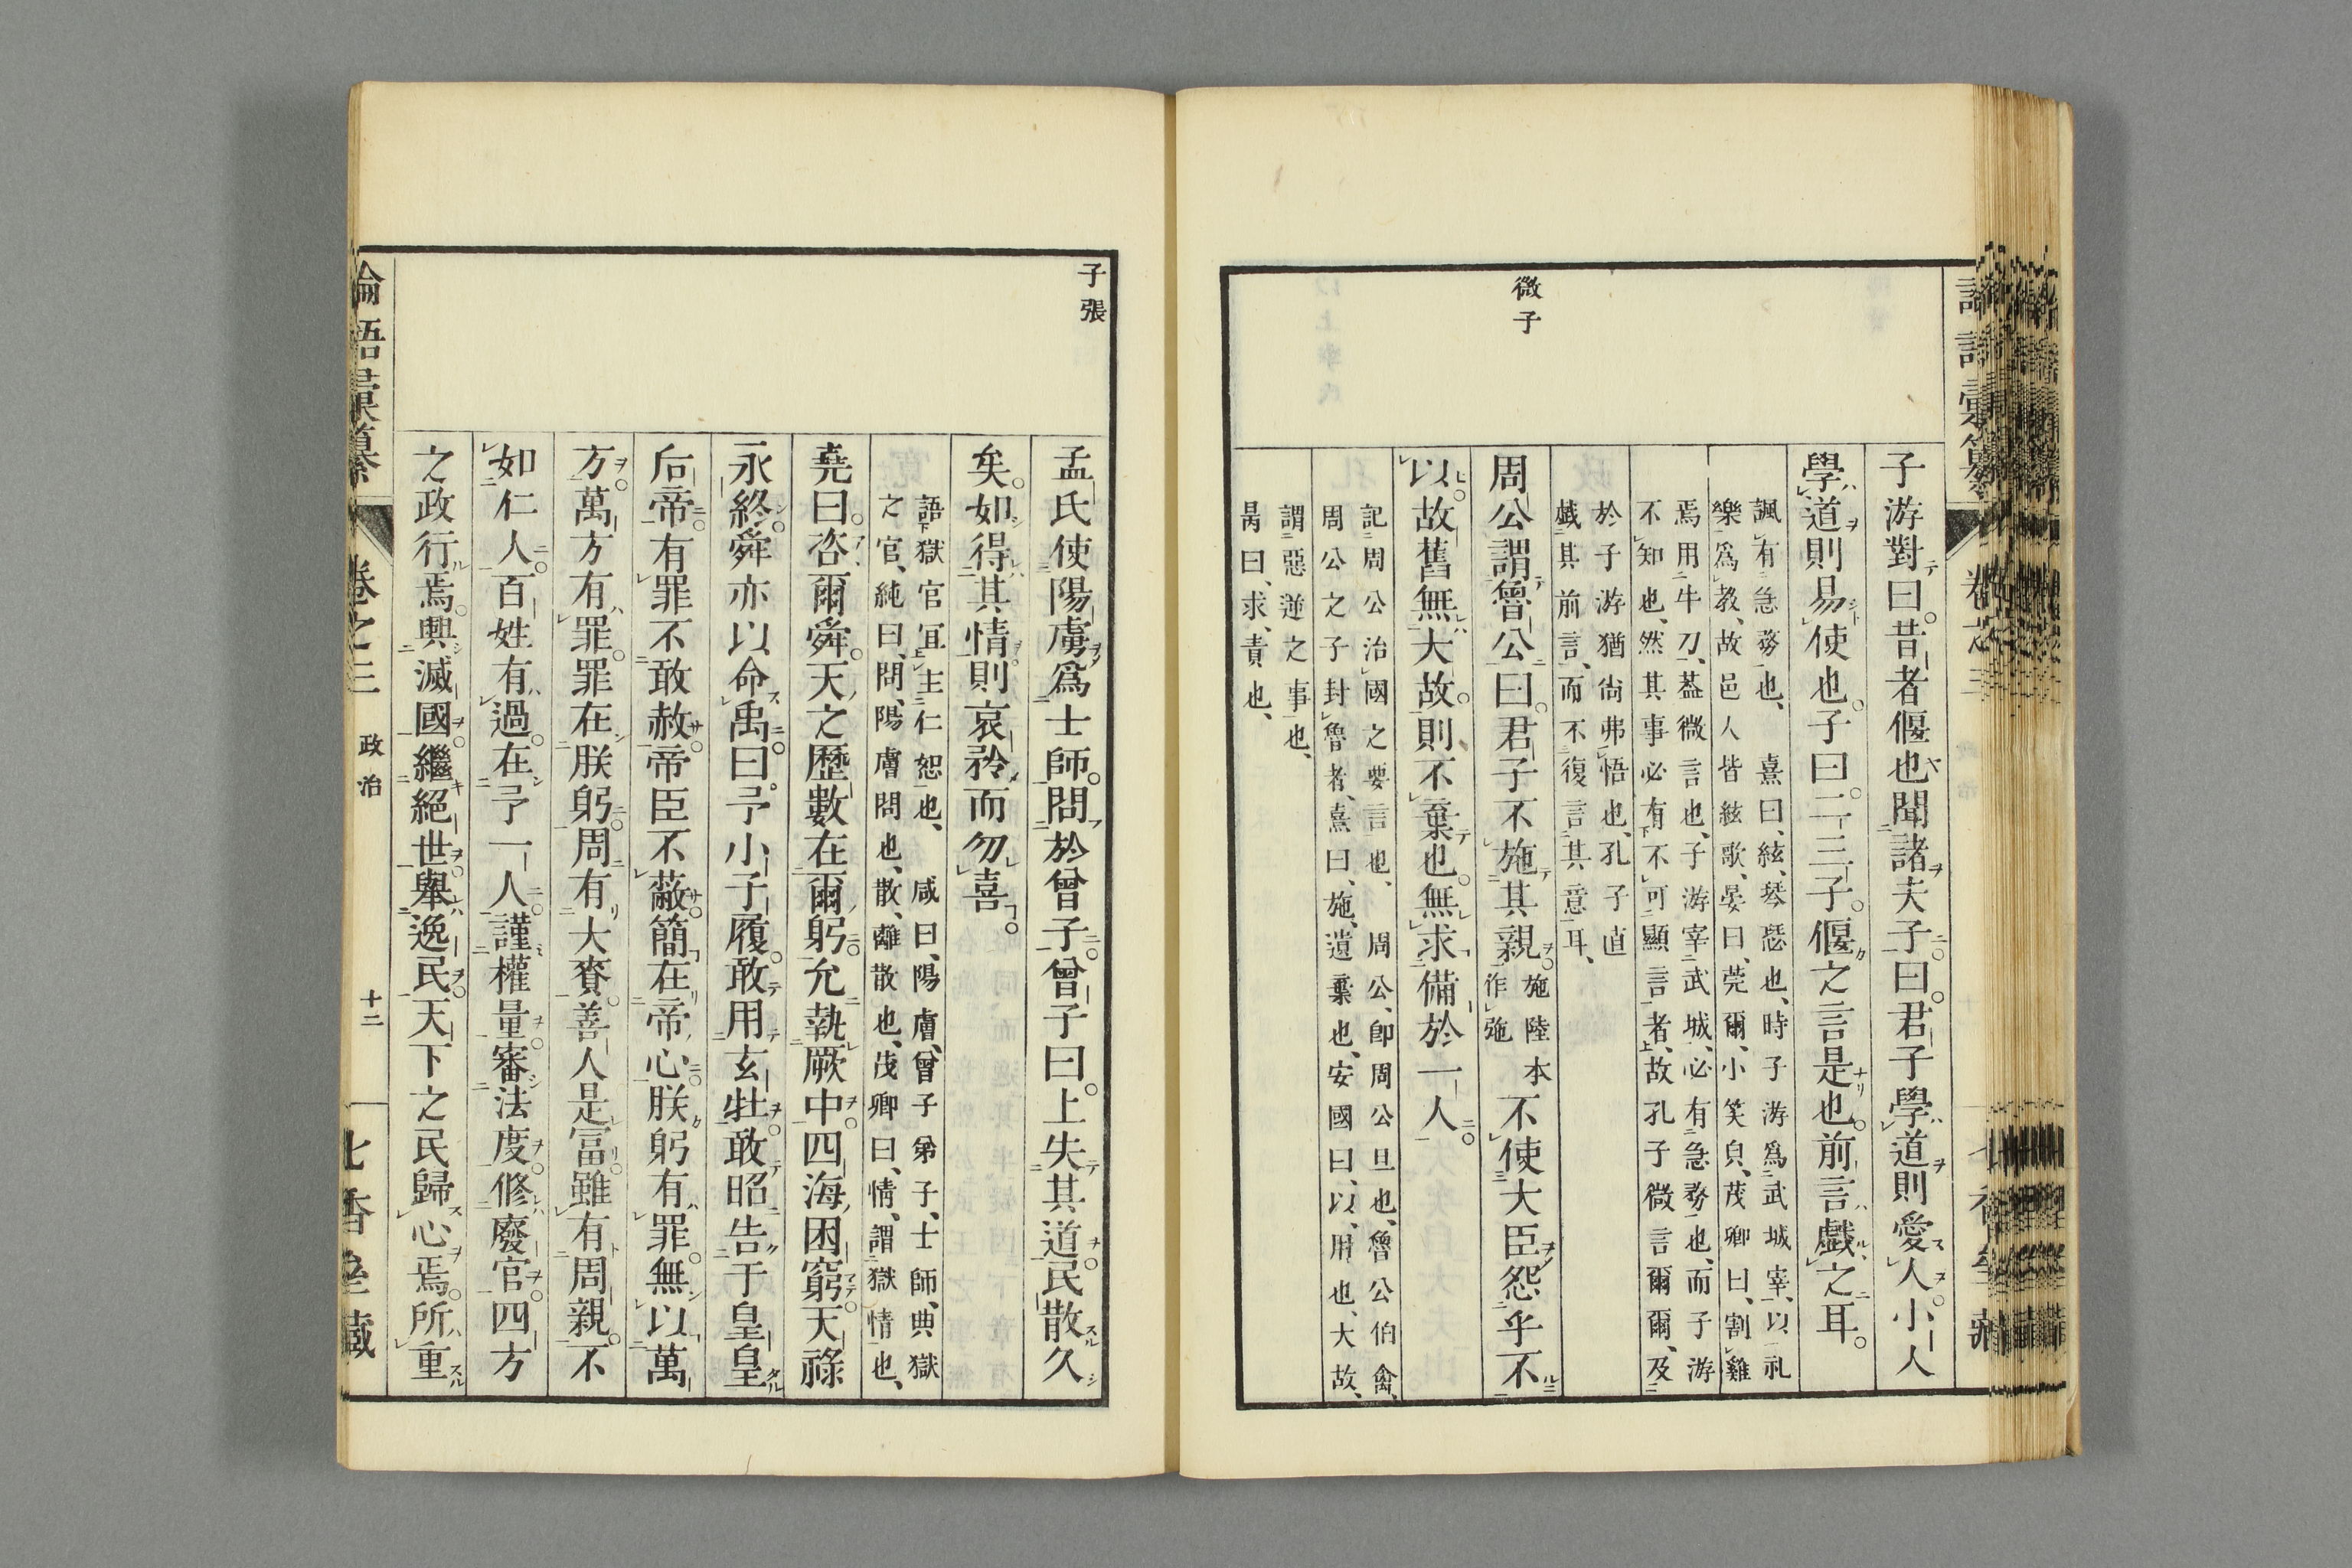 子游對曰。昔者偃也聞諸夫子。曰。君子學道則愛人。小人
學道則易使也。子曰。二三子。偃之言是也。前言戲之耳。
諷有急務也、 熹曰、絃、琴瑟也、時子游爲武城宰、以礼
樂爲教、故邑人皆絃歌、晏曰、莞爾、小笑皃、茂卿曰、割雞
焉用牛刀、蓋微言也、子游宰武城、必有急務也、而子游
不知也、然其事必有不可顯言者、故孔子微言爾爾、及
於子游猶尙弗悟也、孔子直
戲其前言、而不復言其意耳、
微子
周公謂魯公曰。君子不施其親。施陸本作弛不使大臣怨乎不
以。故舊無大故。則不棄也。無求備於一人。
記周公治國之要言也、 周公、卽周公旦也、魯公伯禽、
周公之子封魯者、熹曰、施、遺棄也、安國曰、以、用也、大故、
謂惡逆之事也、
昺曰、求、責也、
卷之三
子張
孟氏使陽膚爲士師。問於曾子。曾子曰。上失其道。民散久
矣。如得其情。則哀矜而勿喜。
語獄官宜主仁恕也、 咸曰、陽膚、曾子弟子、士師、典獄
之官、純曰、問、陽膚問也、散、離散也、茂卿曰、情、謂獄情也、
堯曰。咨爾舜。天之歷數在爾躬。允執厥中。四海困窮。天祿
永終。舜亦以命禹。曰。予小子履。敢用玄牡。敢昭告于皇皇
后帝。有罪不敢赦。帝臣不蔽。簡在帝心。朕躬有罪。無以萬
方。萬方有罪。罪在朕躬。周有大賚。善人是富。雖有周親。不
如仁人。百姓有過。在予一人。謹權量。審法度。修廢官。四方
之政行焉。興滅國。繼絕世。舉逸民。天下之民歸心焉。所重
論語彙纂 卷之三 政治 十二 七香堂藏